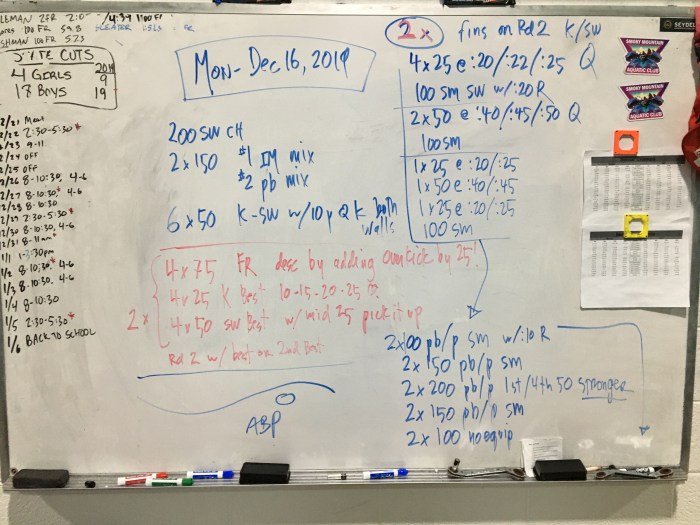 LEMAN 2FR 2:0
4:39 1100 FI
100 FR 59.8
SHMAN 100 FR 523
STATE CUTS
4 GIRLS 9
17 BOYS 19
2/21 Meet
2/22 2:30-5:30*
/23 9-11
/24 OFF
/25 OFF
/26 8-10:30, 4-6
/27 8-10:30,* 4-6
/28 8-10:30
/29 2:30-5:30*
/30 8-10:30, 4-6
/31 8-11am*
1/1 1-3:30pm
1/2 8-10:30,* 4-6
1/3 8-10:30, 4-6
1/4 8-10:30
1/5 2:30-5:30*
1/6 BACK TO SCHOOL
MON- Dec 16, 2019
200 SW CH
2x150 #1 IM mix
#2 pb mix
6x50 K-SW w/10y Q K both
walls
2x
4x75 FR desc by adding overkick by 25!
4x25 K Best 10-15-20-25
4x50 SW Best w/ mid 25 pick it up
Rd 2 w/ best or 2nd Best
ABP
2x fins on Rd 2 K/SW
4x25 @ :20/:22/:25 Q
100 sm SW w/:20R
2x50 @ :40/:45/:50 Q
100 sm
1x25 @ :20/:25
1x50 @ :40/:45
1x25 @ :20/:25
100 sm
2x100 pb/p sm w/:10 R
2x150 pb/p sm
2x200 pb/p 1st/4th 50 stronger
2x150 pb/p sm
2x100 no equip
SMOKY MOUNTAIN
AQUATIC CLUB
SMOKY MOUNTAIN
AQUATIC CLUB